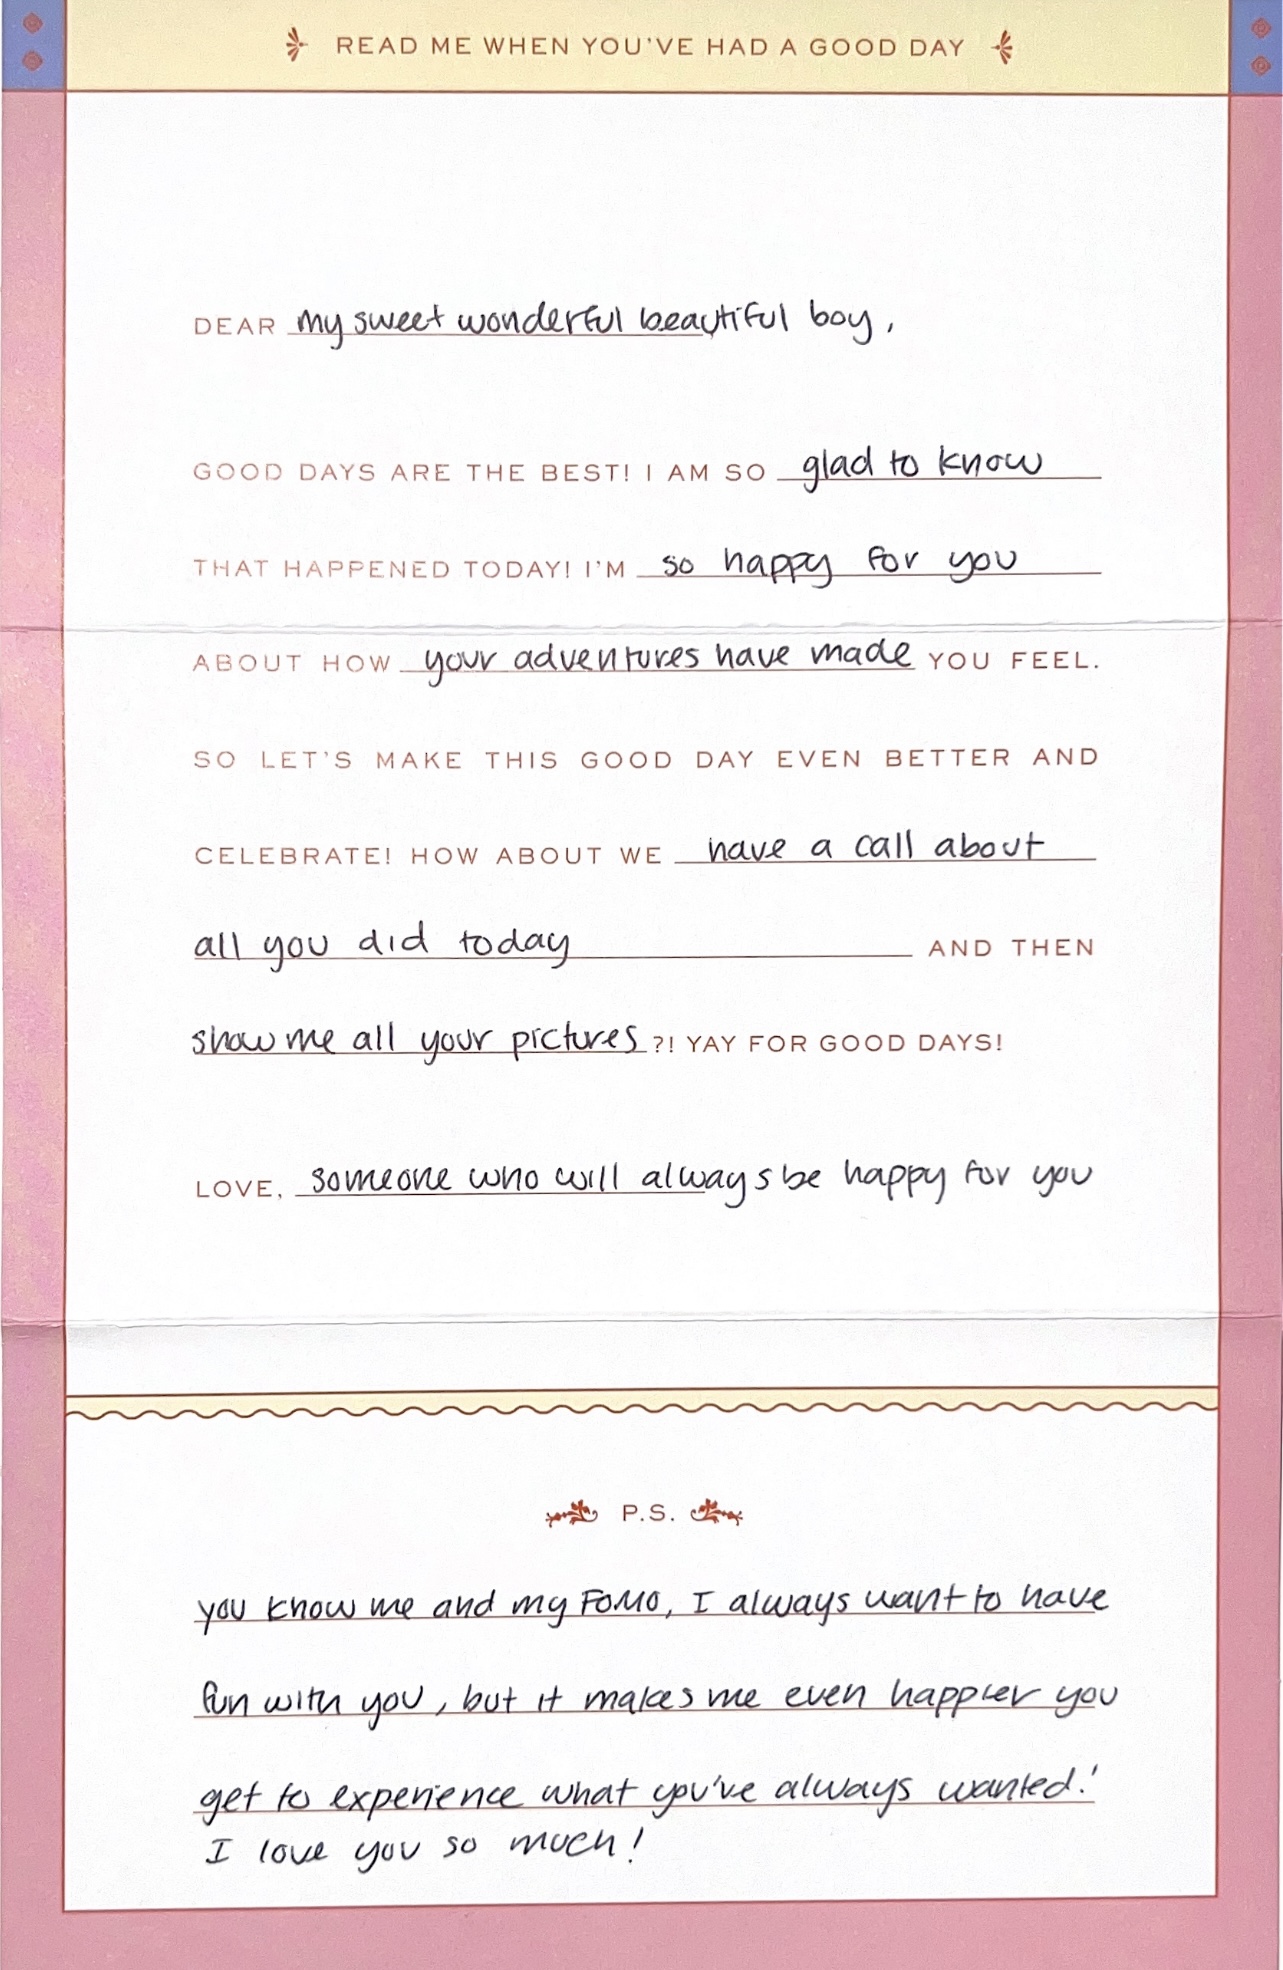 READ ME WHEN YOU'VE HAD A GOOD DAY
DEAR my sweet wonderful beautiful boy,
GOOD DAYS ARE THE BEST! I AM SO glad to know
THAT HAPPENED TODAY! I'M so happy for you
ABOUT HOW your adventures have made YOU FEEL.
SO LET'S MAKE THIS GOOD DAY EVEN BETTER AND
CELEBRATE! HOW ABOUT WE have a call about
all you did today AND THEN
show me all your pictures ?! YAY FOR GOOD DAYS!
LOVE, someone who will always be happy for you
P.S.
you know me and my FOMO, I always want to have
fun with you, but it makes me even happier you
get to experience what you've always wanted!
I love you so much!